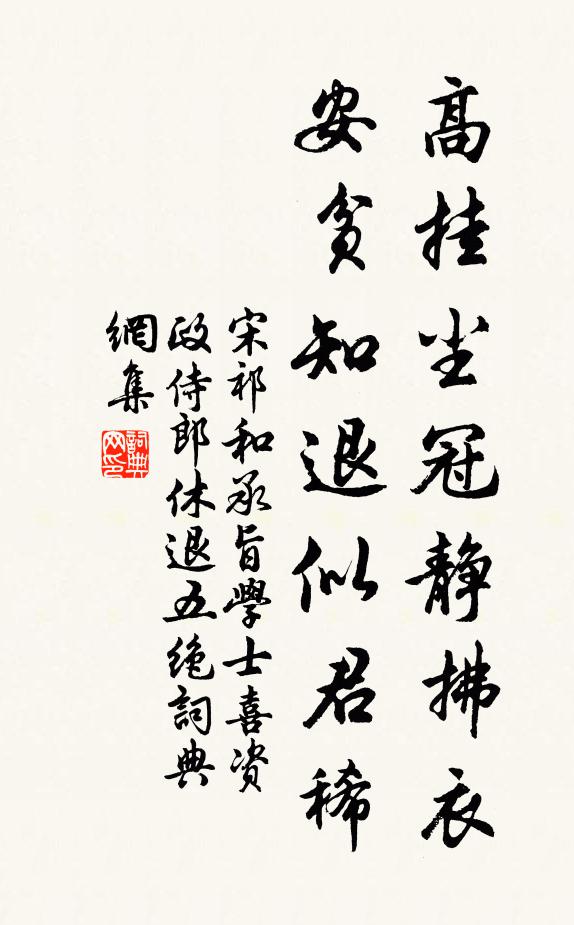 高挂尘冠静拂衣
安贫知退似君稀
宋祁和承旨學士喜资
政侍郎休退五绝詞典
網集
詞典
网印